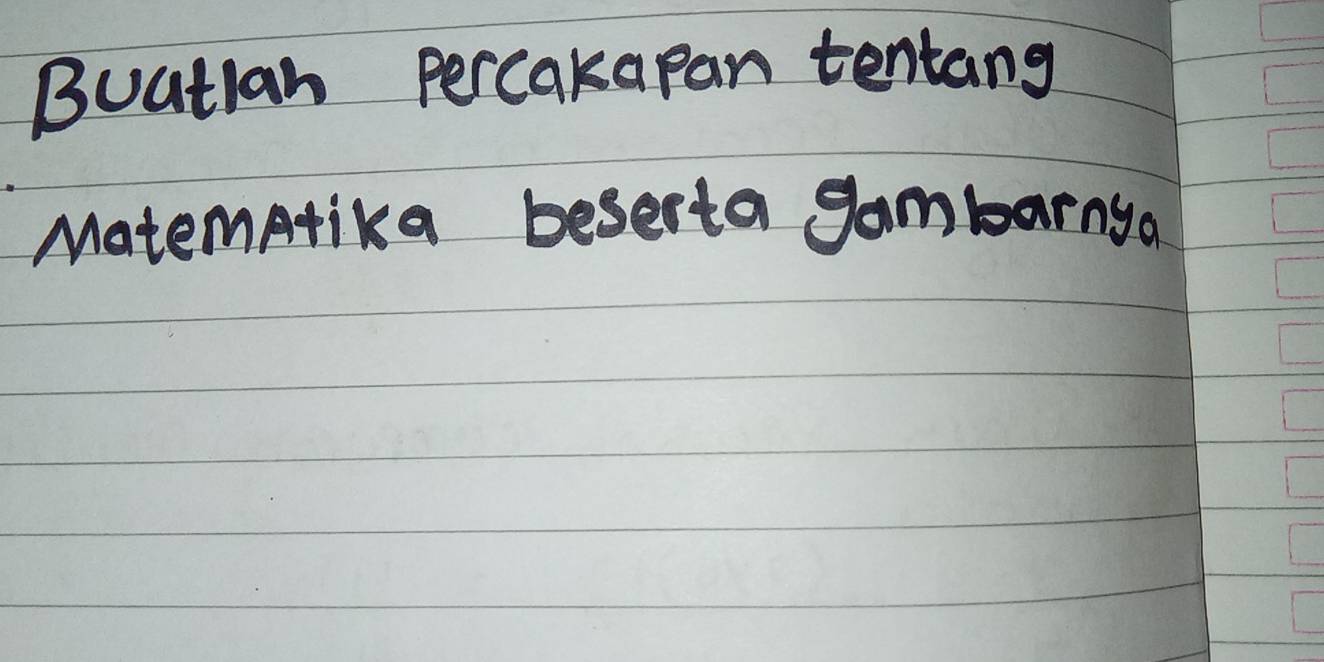 Buatlah Percakapan tentang
Matematika beserta gambarnya